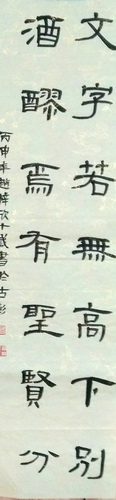 文字若無高下别
酒醪焉有聖賢分
丙申年趙梓欣十歲書於古彭